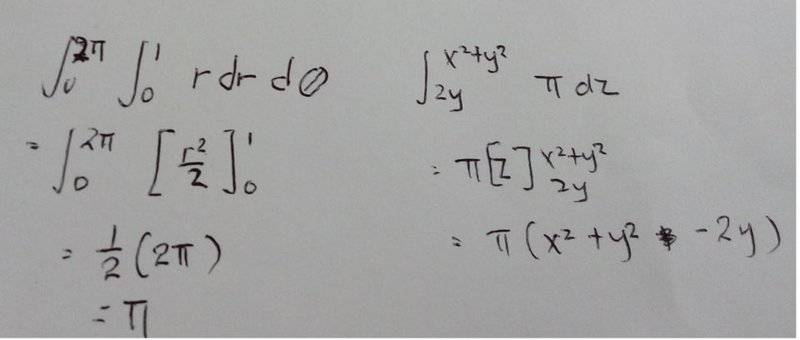 ∫₀^2π ∫₀^1 r dr dθ
= ∫₀^2π [r²/2]₀^1
= 1/2 (2π)
= π
∫_2y^x²+y² π dz
= π[z]_2y^x²+y²
= π(x² + y² - 2y)